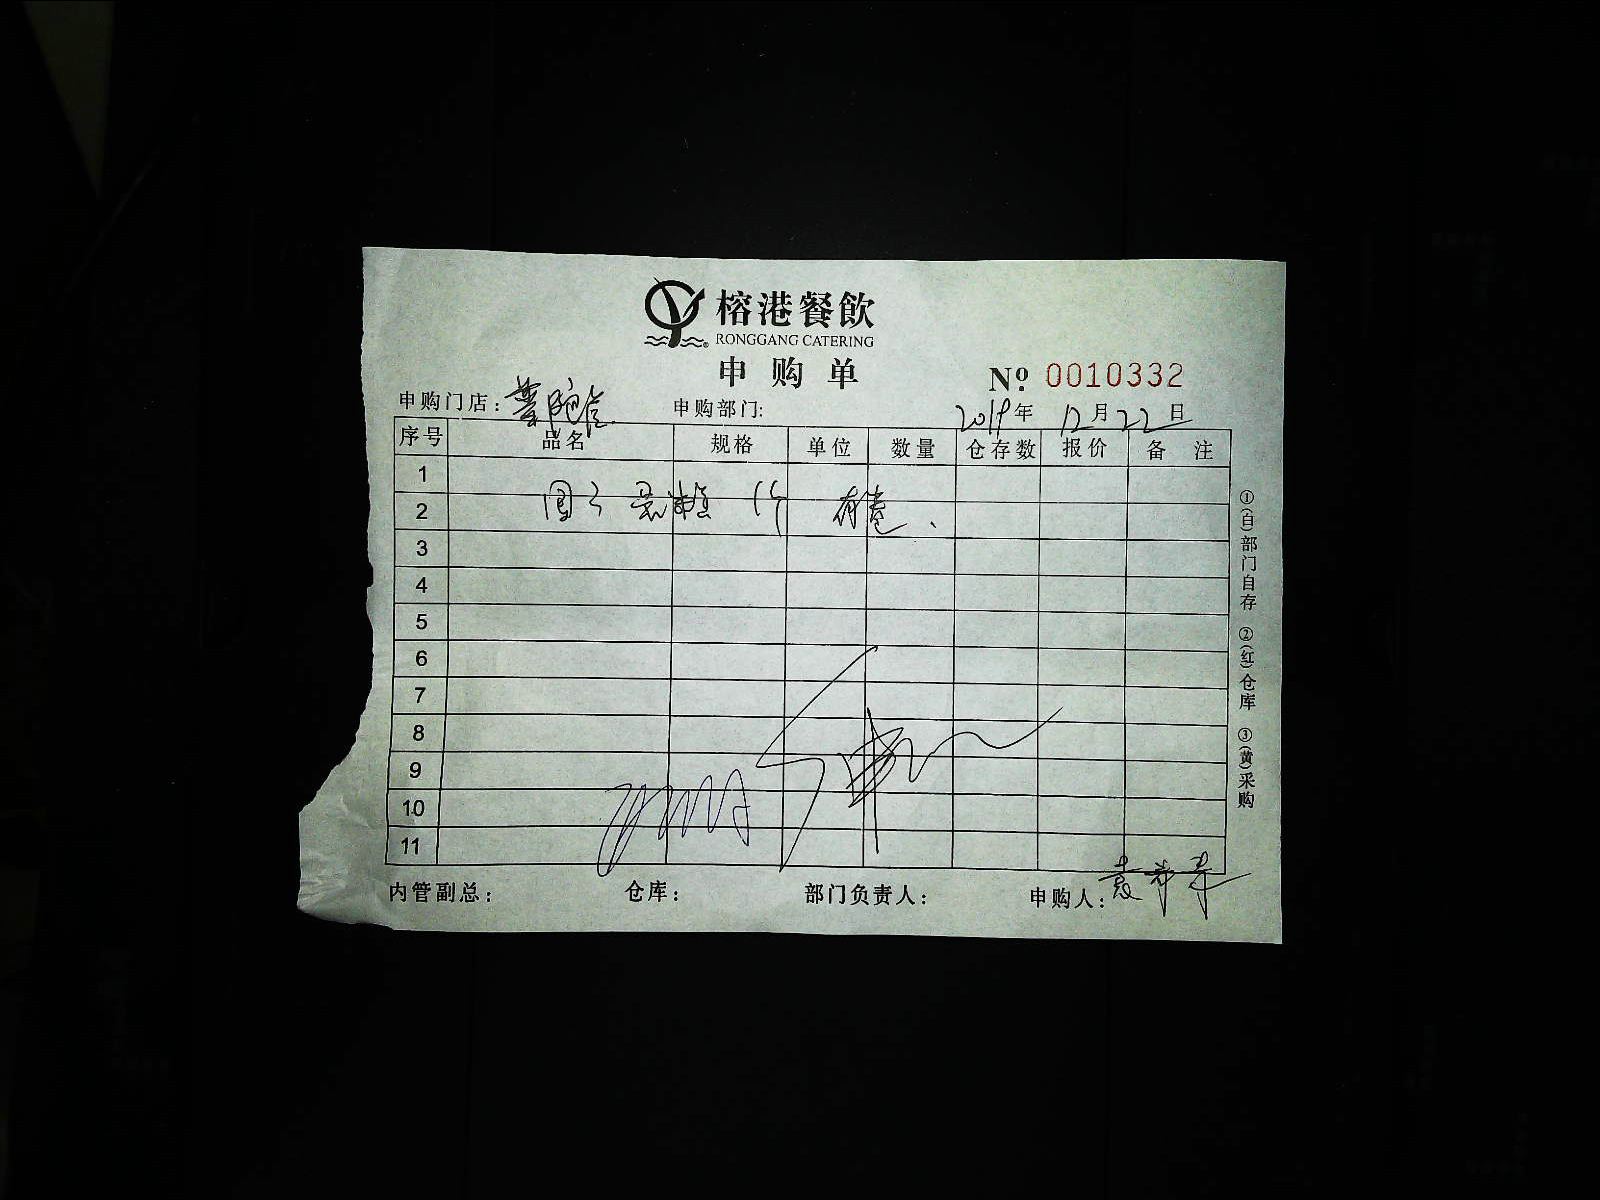 榕港餐飲
RONGGANG CATERING
申购单
№ 0010332
申购门店: 申购部门: 2019年 12月22日
序号 品名 规格 单位 数量 仓存数 报价 备 注
1
2
3
4
5
6
7
8
9
10
11
内管副总: 仓库: 部门负责人: 申购人:
①(白)部门自存 ②(红)仓库 ③(黄)采购